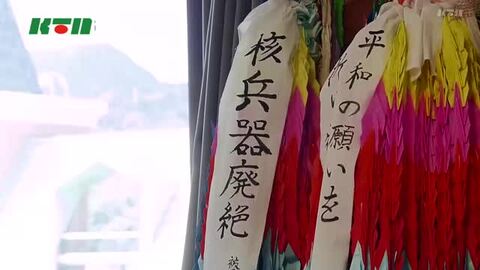 KTN
KTN
平和 の願いを
核兵器廃絶